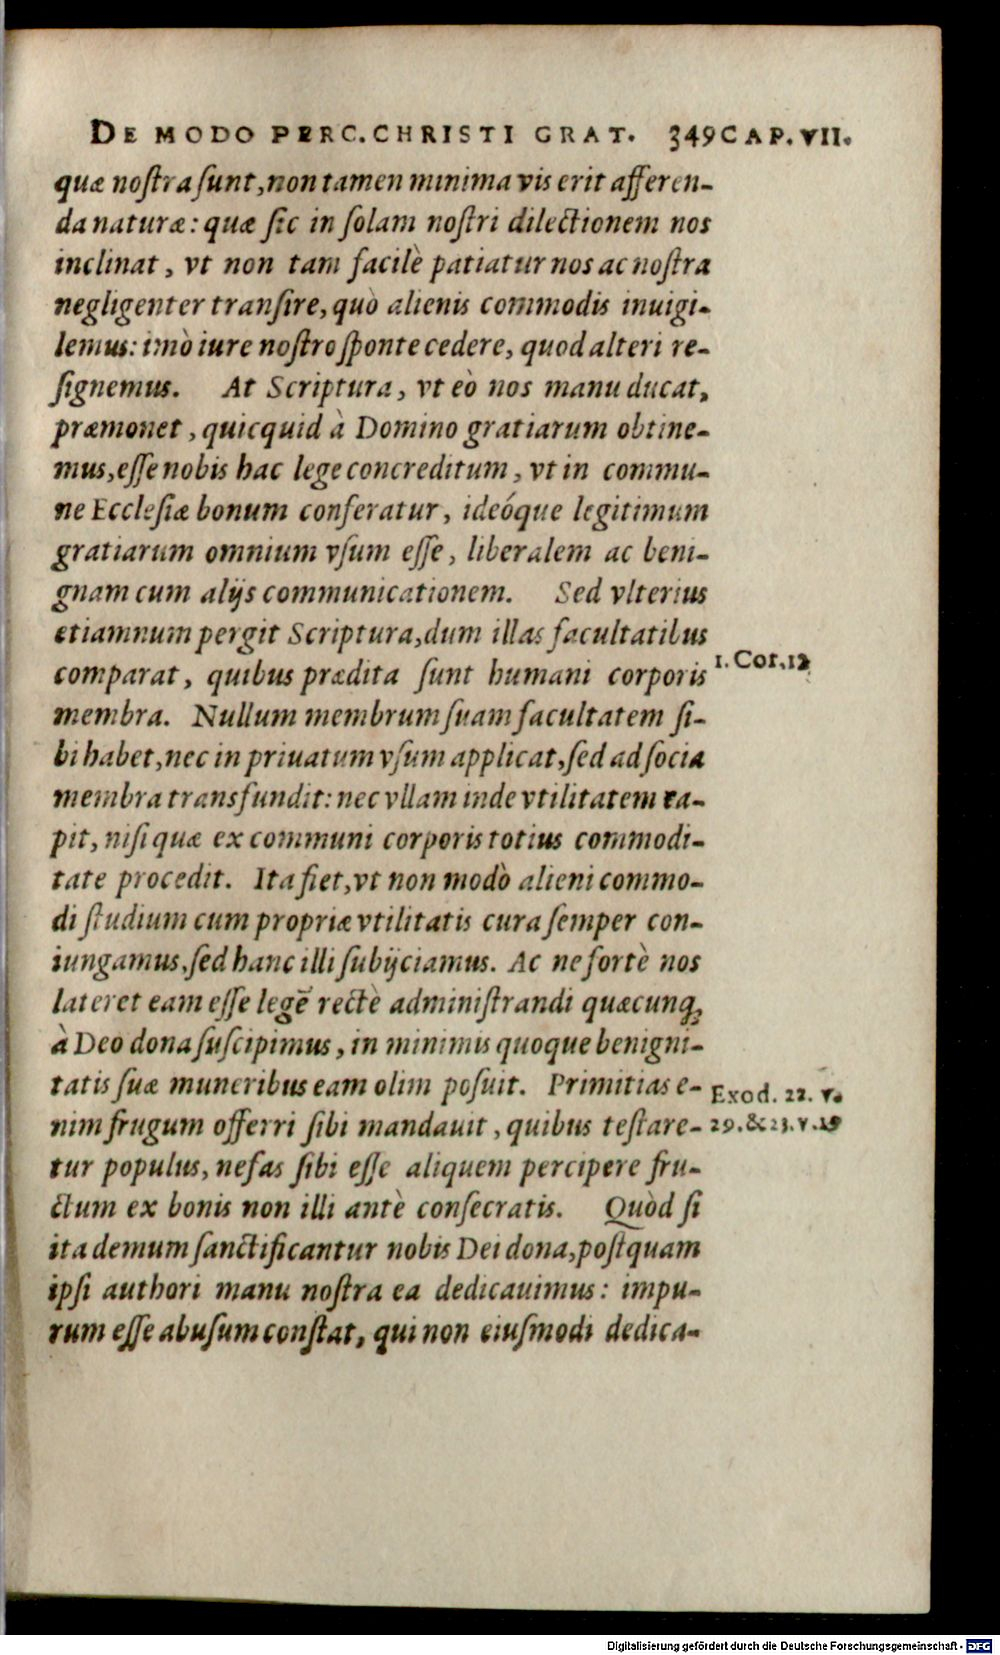 DE MODO PERC. CHRISTI GRAT. 349 CAP. VII.
quæ noſtra ſunt, non tamen minima vis erit afferen-
da naturæ: quæ ſic in ſolam noſtri dilectionem nos
inclinat, vt non tam facilè patiatur nos ac noſtra
negligenter tranſire, quò alienis commodis inuigi-
lemus: imò iure noſtro ſponte cedere, quod alteri re-
ſignemus. At Scriptura, vt eò nos manu ducat,
præmonet, quicquid à Domino gratiarum obtine-
mus, eſſe nobis hac lege concreditum, vt in commu-
ne Eccleſiæ bonum conferatur, ideóque legitimum
gratiarum omnium vſum eſſe, liberalem ac beni-
gnam cum alijs communicationem. Sed vlterius
etiamnum pergit Scriptura, dum illas facultatibus
comparat, quibus prædita ſunt humani corporis
1. Cor. 12
membra. Nullum membrum ſuam facultatem ſi-
bi habet, nec in priuatum vſum applicat, ſed ad ſocia
membra transfundit: nec vllam inde vtilitatem ca-
pit, niſi quæ ex communi corporis totius commodi-
tate procedit. Ita fiet, vt non modò alieni commo-
di ſtudium cum propriæ vtilitatis cura ſemper con-
iungamus, ſed hanc illi ſubijciamus. Ac ne fortè nos
lateret eam eſſe legē rectè adminiſtrandi quæcunq;
à Deo dona ſuſcipimus, in minimis quoque benigni-
tatis ſuæ muneribus eam olim poſuit. Primitias e-
Exod. 22. v.
nim frugum offerri ſibi mandauit, quibus teſtare-
29. & 23. v. 19
tur populus, nefas ſibi eſſe aliquem percipere fru-
ctum ex bonis non illi antè conſecratis. Quòd ſi
ita demum ſanctificantur nobis Dei dona, poſtquam
ipſi authori manu noſtra ea dedicauimus: impu-
rum eſſe abuſum conſtat, qui non eiuſmodi dedica-
Digitalisierung gefördert durch die Deutsche Forschungsgemeinschaft - DFG